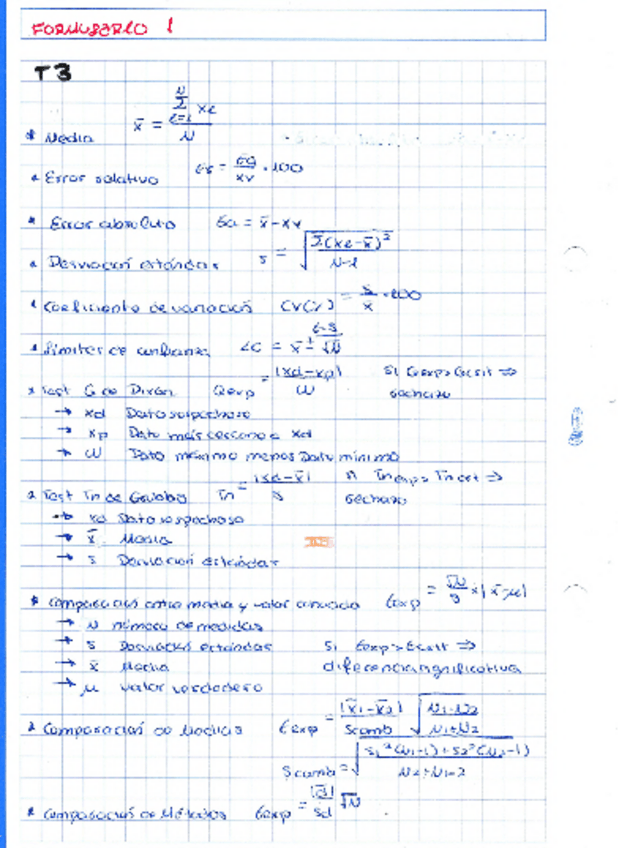 FORMULARIO 1
T3
* Media x̄ = Σ(i=1→N) xi / N
* Error relativo Er = Ea / xv · 100
* Error absoluto Ea = x̄ - xv
* Desviación estándar s = √(Σ(xi - x̄)² / N-1)
* Coeficiente de variación CV(%) = s / x̄ · 100
* Límites de confianza LC = x̄ ± t·s / √N
* Test Q de Dixon Qexp = |xd - xp| / W Si Qexp > Qcrit ⇒ rechazo
→ xd Dato sospechoso
→ xp Dato más cercano a xd
→ W Dato máximo menos Dato mínimo
* Test Tn de Grubbs Tn = |xd - x̄| / s Si Tnexp > Tncrit ⇒ rechazo
→ xd Dato sospechoso
→ x̄ Media
→ s Desviación estándar
* Comparación entre media y valor conocido texp = √N / s × |x̄ - μ|
→ N número de medidas
→ s Desviación estándar Si texp > tcrit ⇒
→ x̄ Media diferencia significativa
→ μ valor verdadero
* Comparación de Medias texp = |x̄1 - x̄2| / Scomb √(N1·N2 / N1+N2)
Scomb = √(s1²(N1-1) + s2²(N2-1) / N2+N1-2)
* Comparación de Métodos texp = |d̄| / sd √N